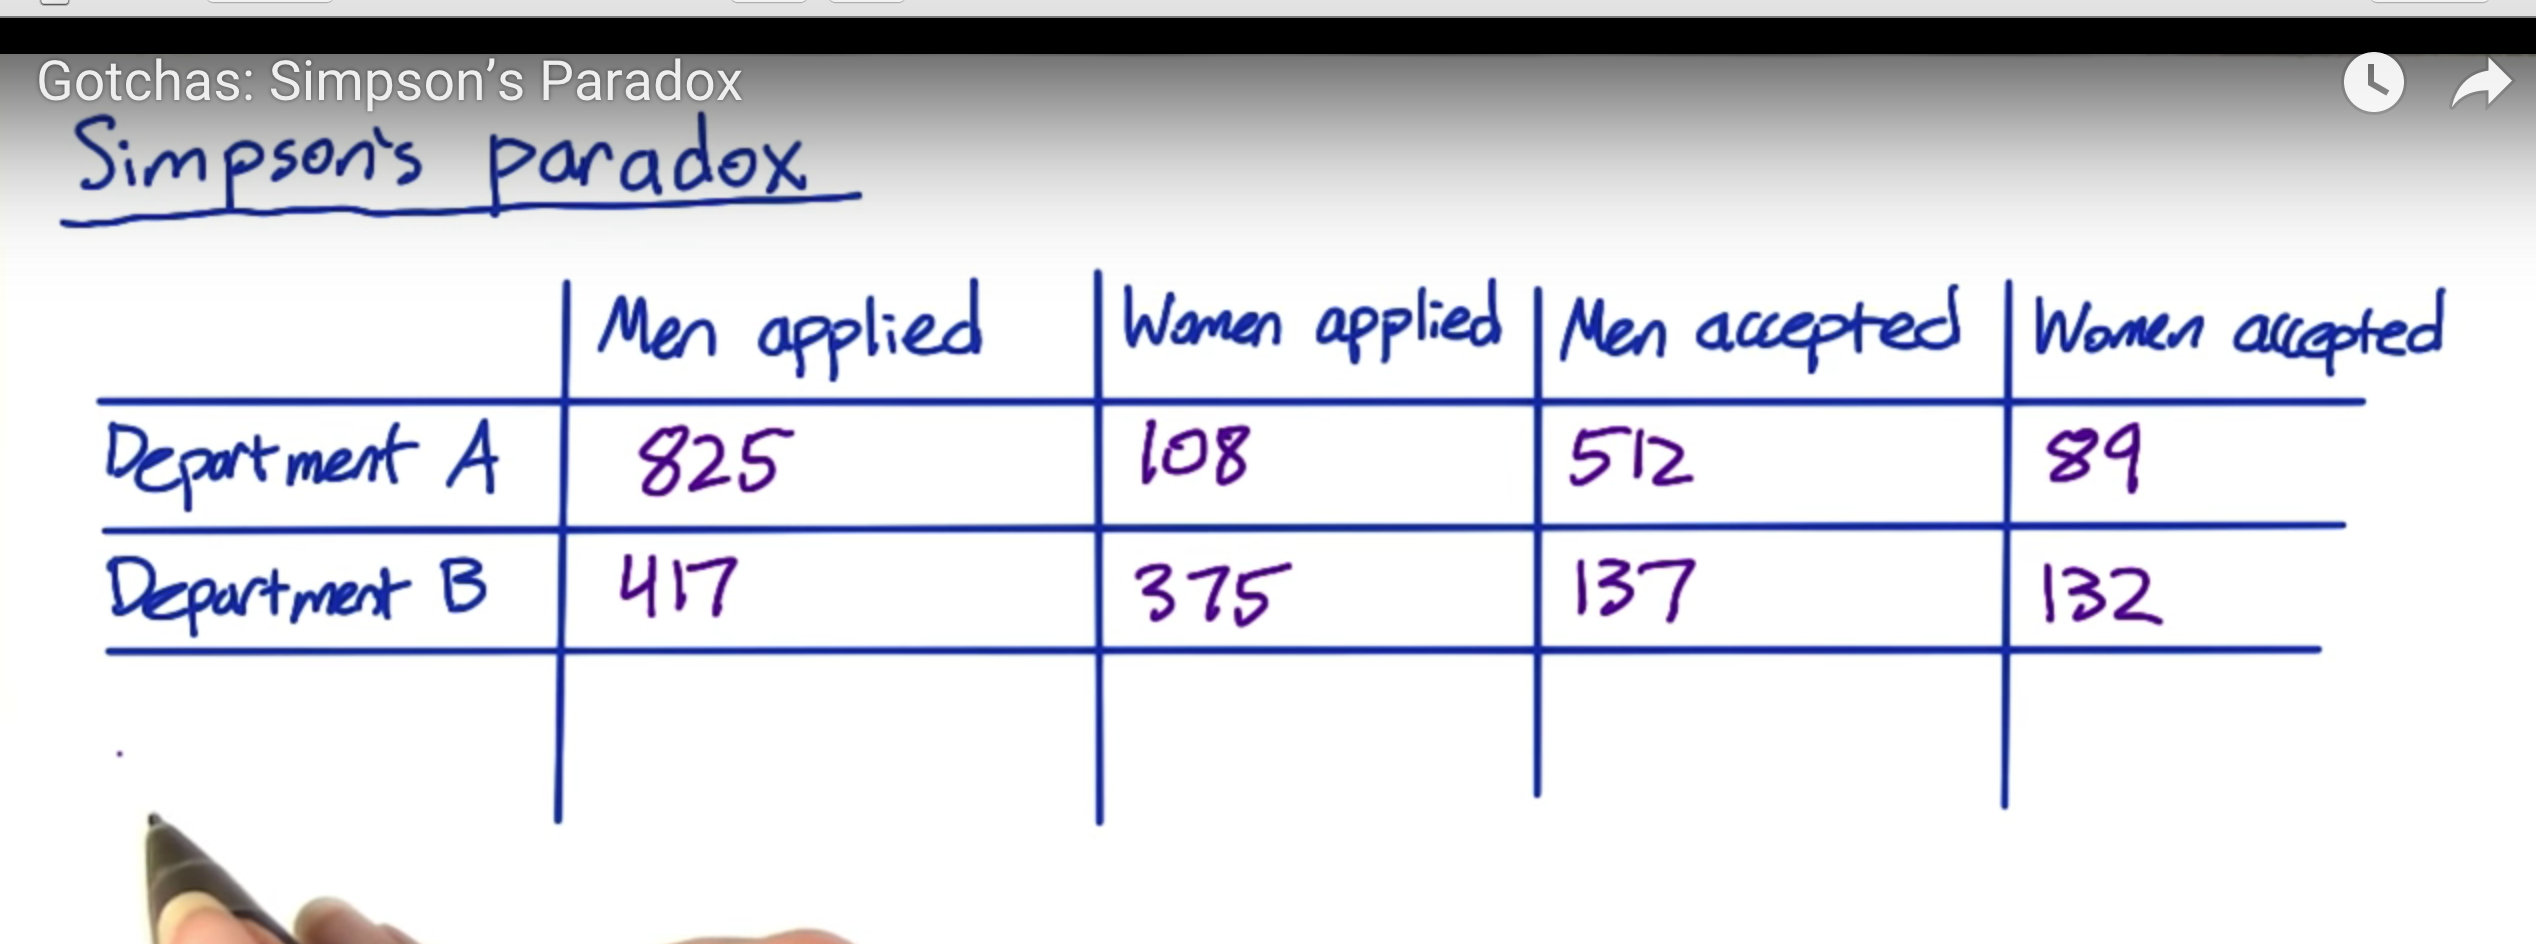 Gotchas: Simpson’s Paradox
Simpson's paradox
Men applied Women applied Men accepted Women accepted
Department A 825 108 512 89
Department B 417 375 137 132